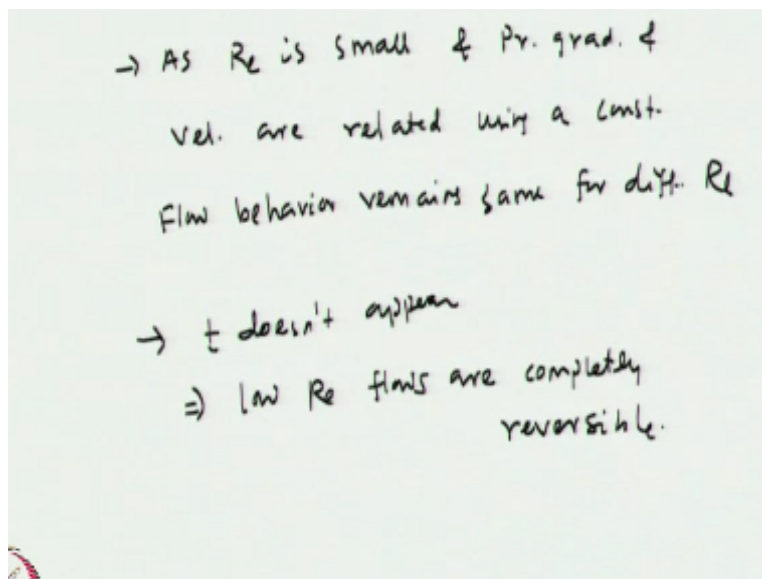 → As Re is small & Pr. grad. &
vel. are related using a const.
Flow behavior remains same for diff. Re
→ t doesn't appear
⇒ low Re flows are completely
reversible.